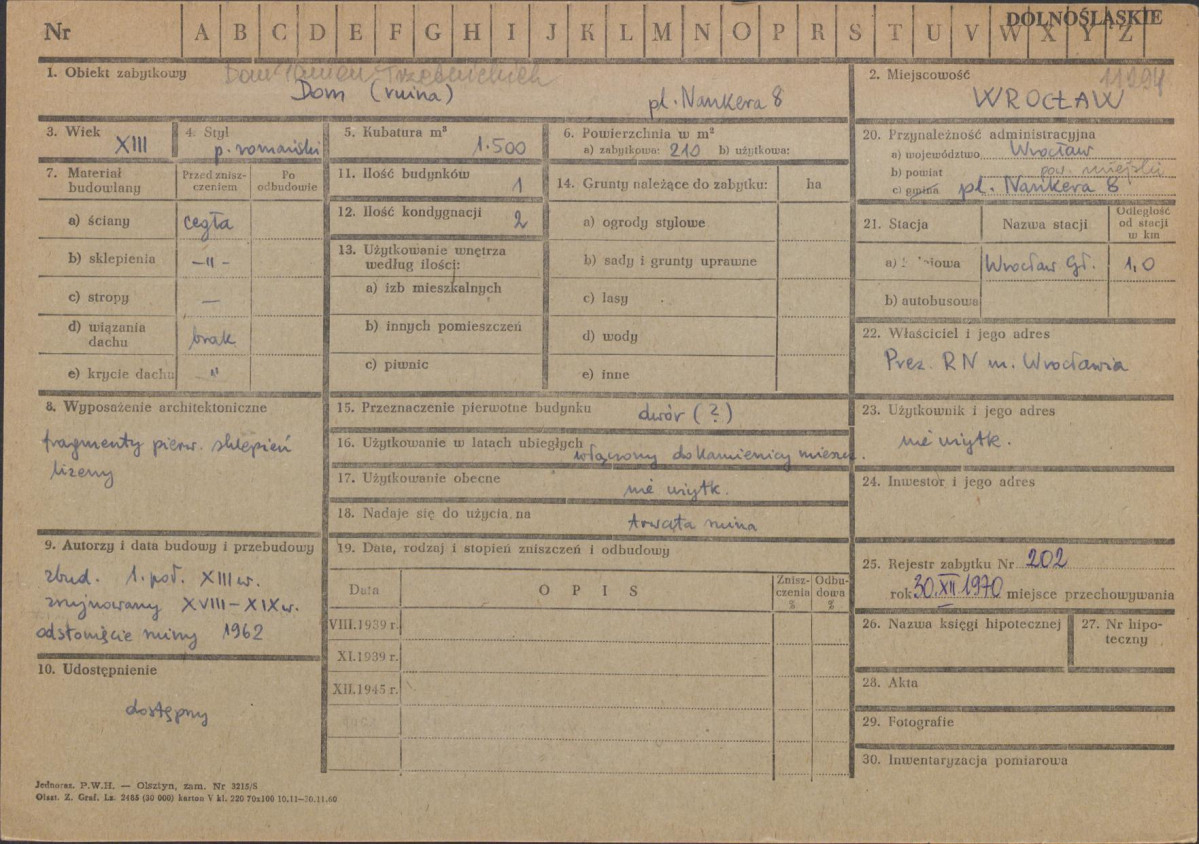 Nr A B C D E F G H I J K L M N O P R S T U V W X Y Z
DOLNOŚLĄSKIE
1. Obiekt zabytkowy
Dom Panien Trzebnickich
Dom (ruina) pl. Nankera 8
2. Miejscowość
11294
WROCŁAW
3. Wiek
XIII
4. Styl
p. romański
5. Kubatura m³
1.500
6. Powierzchnia w m²
a) zabytkowa: 210 b) użytkowa:
20. Przynależność administracyjna
a) województwo Wrocław
b) powiat pow. miejski
c) gmina pl. Nankera 8
7. Materiał budowlany
Przed zniszczeniem
Po odbudowie
a) ściany cegła
b) sklepienia —"—
c) stropy —
d) wiązania dachu brak
e) krycie dachu "
11. Ilość budynków 1
12. Ilość kondygnacji 2
13. Użytkowanie wnętrza
według ilości:
a) izb mieszkalnych
b) innych pomieszczeń
c) piwnic
14. Grunty należące do zabytku: ha
a) ogrody stylowe
b) sady i grunty uprawne
c) lasy
d) wody
e) inne
21. Stacja
Nazwa stacji
Odległość od stacji w km
Wrocław Gł. 1,0
b) autobusowa
22. Właściciel i jego adres
Prez. RN m. Wrocławia
8. Wyposażenie architektoniczne
fragmenty pierw. sklepień
lizeny
15. Przeznaczenie pierwotne budynku dwór (?)
16. Użytkowanie w latach ubiegłych
włączony do kamienicy mieszk.
17. Użytkowanie obecne nie użytk.
18. Nadaje się do użycia na trwała ruina
23. Użytkownik i jego adres
nie użytk.
24. Inwestor i jego adres
9. Autorzy i data budowy i przebudowy
zbud. 1. poł. XIII w.
zrujnowany XVIII–XIX w.
odsłonięcie ruiny 1962
10. Udostępnienie
dostępny
19. Data, rodzaj i stopień zniszczeń i odbudowy
Data
OPIS
Zniszczenia %
Odbudowa %
VIII.1939 r.
XI.1939 r.
XII.1945 r.
25. Rejestr zabytku Nr 202
rok 30.XII.1970 miejsce przechowywania
26. Nazwa księgi hipotecznej
27. Nr hipoteczny
28. Akta
29. Fotografie
30. Inwentaryzacja pomiarowa
Jednoraz. P.W.H. — Olsztyn, zam. Nr 3215/S
Olszt. Z. Graf. Lz. 2485 (30 000) karton V kl. 220 70x100 10.11—20.11.60